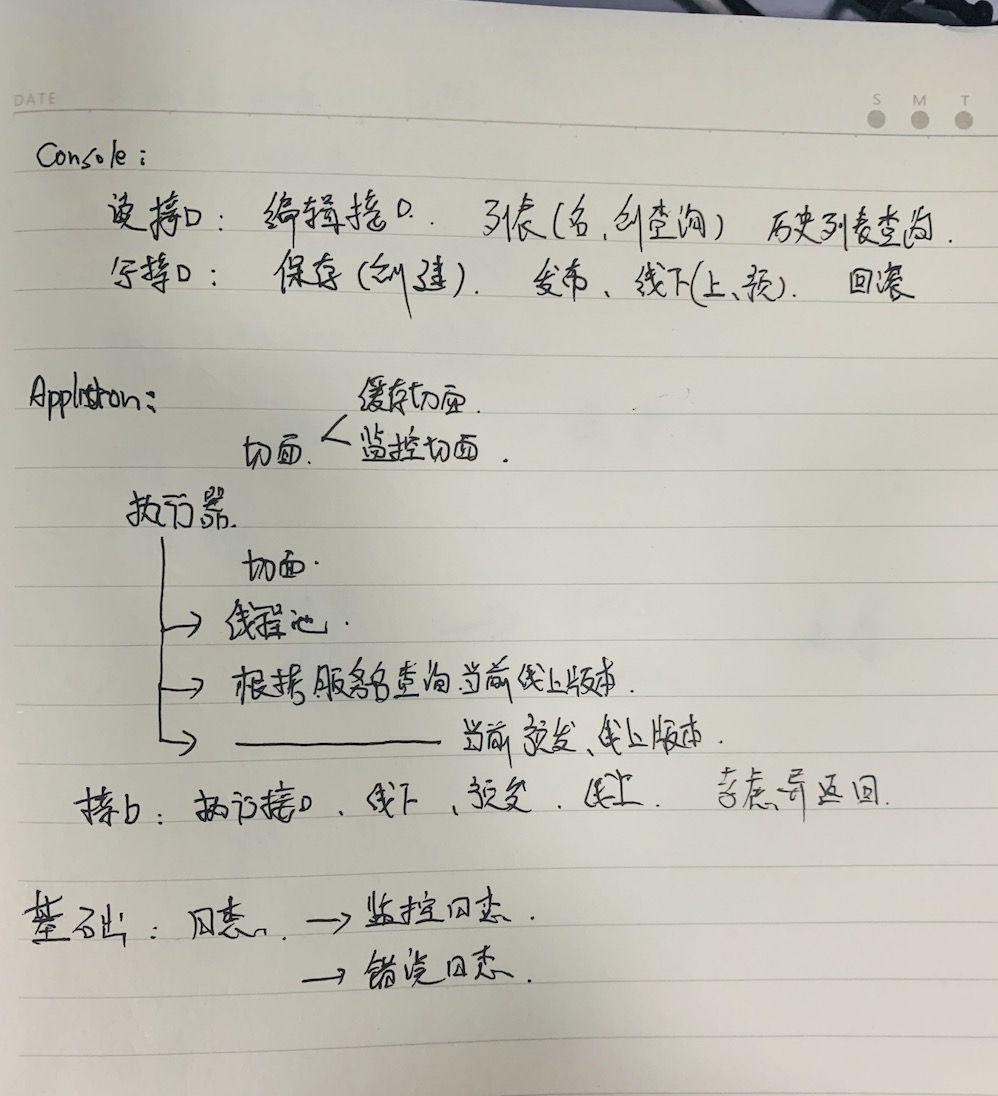 DATE
S M T
Console：
读接口： 编辑接口. 列表(名、创查询) 历史列表查询.
写接口： 保存(创建). 发布、线下(上、预). 回滚
Application：
缓存切面.
切面. < 监控切面.
执行器.
切面.
→ 线程池.
→ 根据服务名查询当前线上版本.
→ —————— 当前预发、线上版本.
接口：执行接口、线下、预发、线上. 考虑 返回.
基础：日志. → 监控日志.
→ 错误日志.